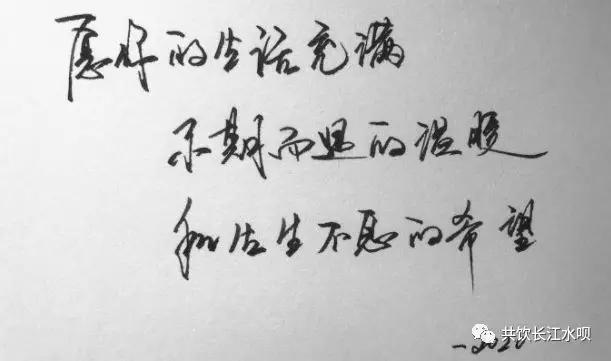 愿你的生活充满
不期而遇的温暖
和生生不息的希望
共饮长江水呗